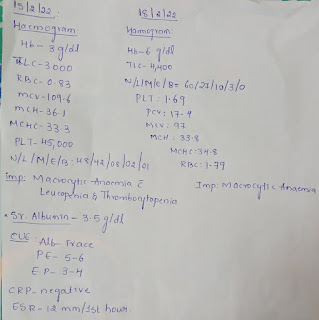 15/2/22:
Haemogram:
Hb- 3 g/dl
TLC-3000
RBC- 0.83
MCV-109.6
MCH-36.1
MCHC-33.3
PLT-45,000
N/L/M/E/B: 48/42/08/02/01
Imp: Macrocytic Anaemia c̄
Leucopenia & Thrombocytopenia
• Sr. Albumin- 3.5 g/dl
CUE: Alb- Trace
PC- 5-6
EP- 3-4
CRP- negative
ESR- 12 mm/1st hour.
18/2/22
Hemogram:
Hb-6 g/dl
TLC- 4,400
N/L/M/E/B= 60/27/10/3/0
PLT: 1.69
PCV: 17.4
MCV: 97
MCH: 33.8
MCHC: 34.8
RBC: 1.79
Imp: Macrocytic Anaemia